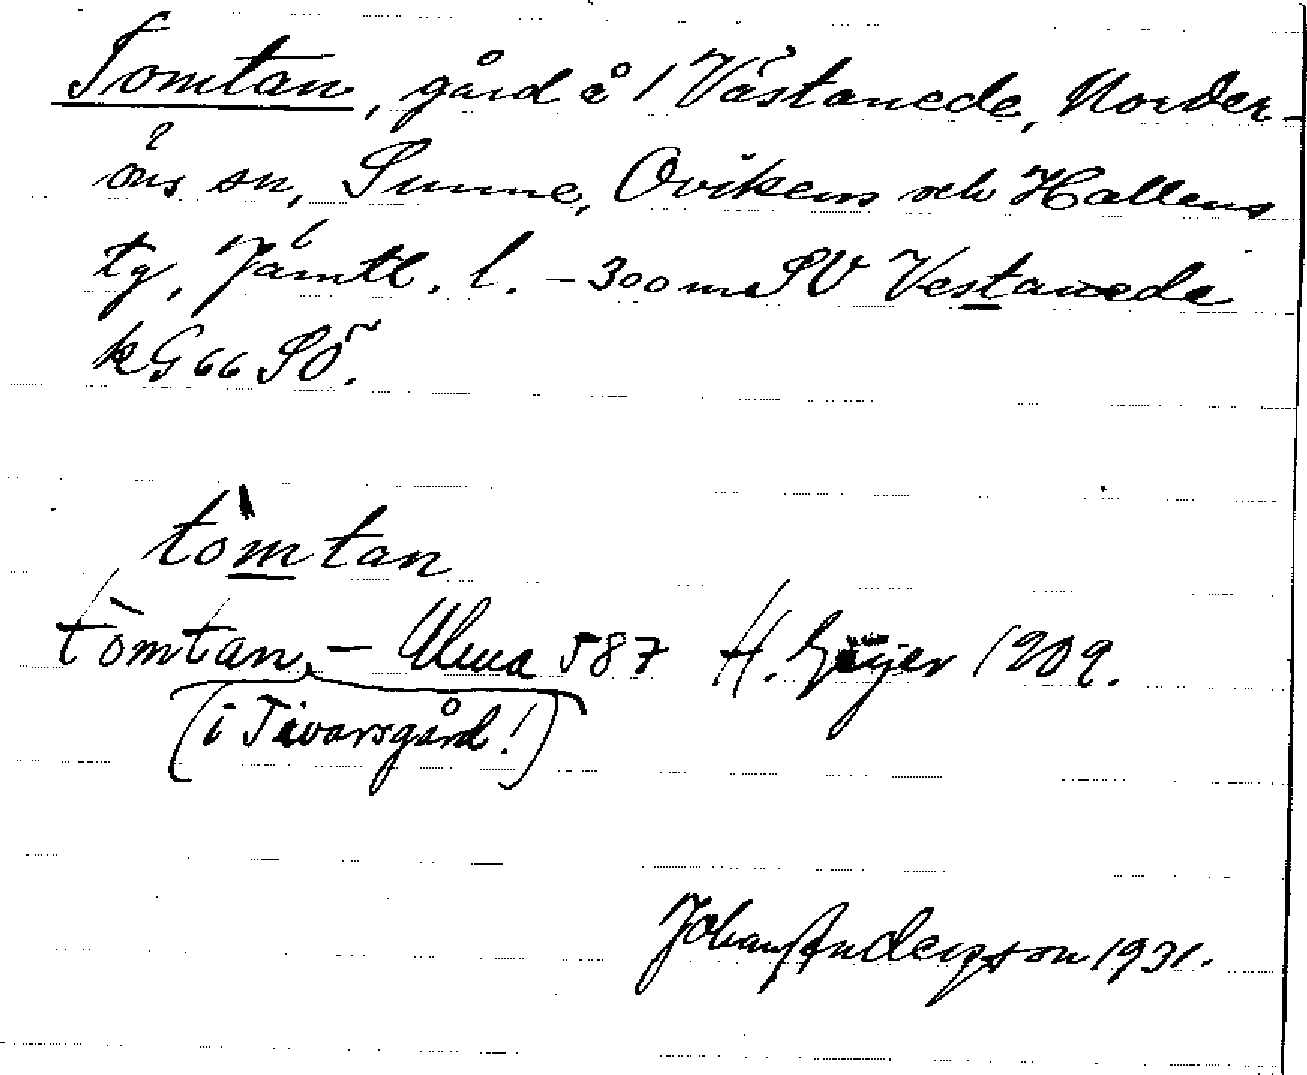 Tomtan, gård å 1 Västanede, Norder-
öns sn, Sunne, Ovikens och Hallens
tg, Jämtl. l. – 300 m SV Vestanede
kG 66 SÖ.
tòmtan
tòmtan, – Ulma 587 H. Geijer 1909.
(i Tivarsgård!)
Johan Andersson 1931.